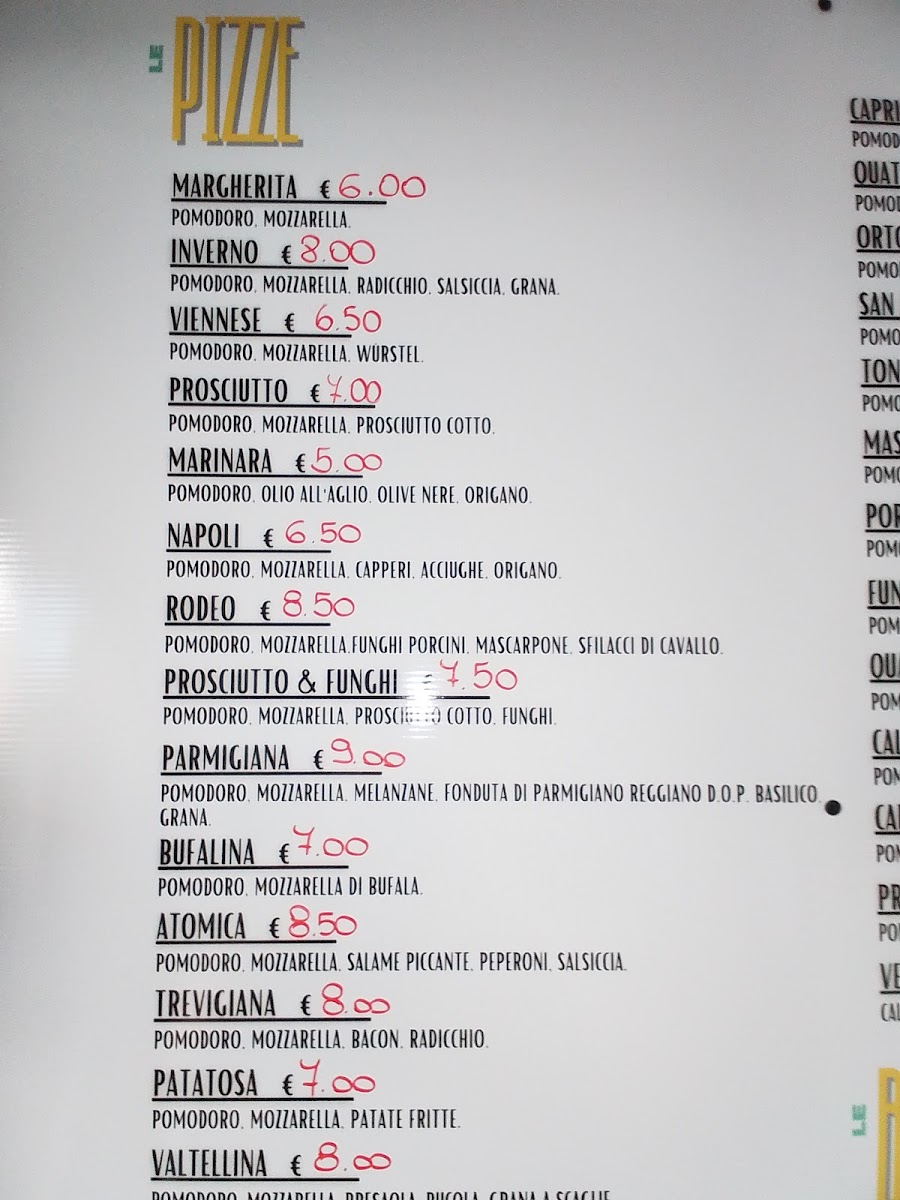 LE PIZZE
MARGHERITA € 6.00
POMODORO, MOZZARELLA.
INVERNO € 8.00
POMODORO, MOZZARELLA, RADICCHIO, SALSICCIA, GRANA.
VIENNESE € 6.50
POMODORO, MOZZARELLA, WÜRSTEL.
PROSCIUTTO € 7.00
POMODORO, MOZZARELLA, PROSCIUTTO COTTO.
MARINARA € 5.00
POMODORO, OLIO ALL'AGLIO, OLIVE NERE, ORIGANO.
NAPOLI € 6.50
POMODORO, MOZZARELLA, CAPPERI, ACCIUGHE, ORIGANO.
RODEO € 8.50
POMODORO, MOZZARELLA,FUNGHI PORCINI, MASCARPONE, SFILACCI DI CAVALLO.
PROSCIUTTO & FUNGHI € 7.50
POMODORO, MOZZARELLA, PROSCIUTTO COTTO, FUNGHI.
PARMIGIANA € 9.00
POMODORO, MOZZARELLA, MELANZANE, FONDUTA DI PARMIGIANO REGGIANO D.O.P. BASILICO,
GRANA.
BUFALINA € 7.00
POMODORO, MOZZARELLA DI BUFALA.
ATOMICA € 8.50
POMODORO, MOZZARELLA, SALAME PICCANTE, PEPERONI, SALSICCIA.
TREVIGIANA € 8.00
POMODORO, MOZZARELLA, BACON, RADICCHIO.
PATATOSA € 7.00
POMODORO, MOZZARELLA, PATATE FRITTE.
VALTELLINA € 8.00
POMODORO, MOZZARELLA, BRESAOLA, RUCOLA, GRANA A SCAGLIE
CAPRI
POMOD
QUAT
POMOD
ORTO
POMO
SAN
POMO
TON
POMO
MAS
POMO
POR
POM
FUN
POM
QUA
POM
CAL
POM
CA
POM
PR
PO
VE
CAL
LE